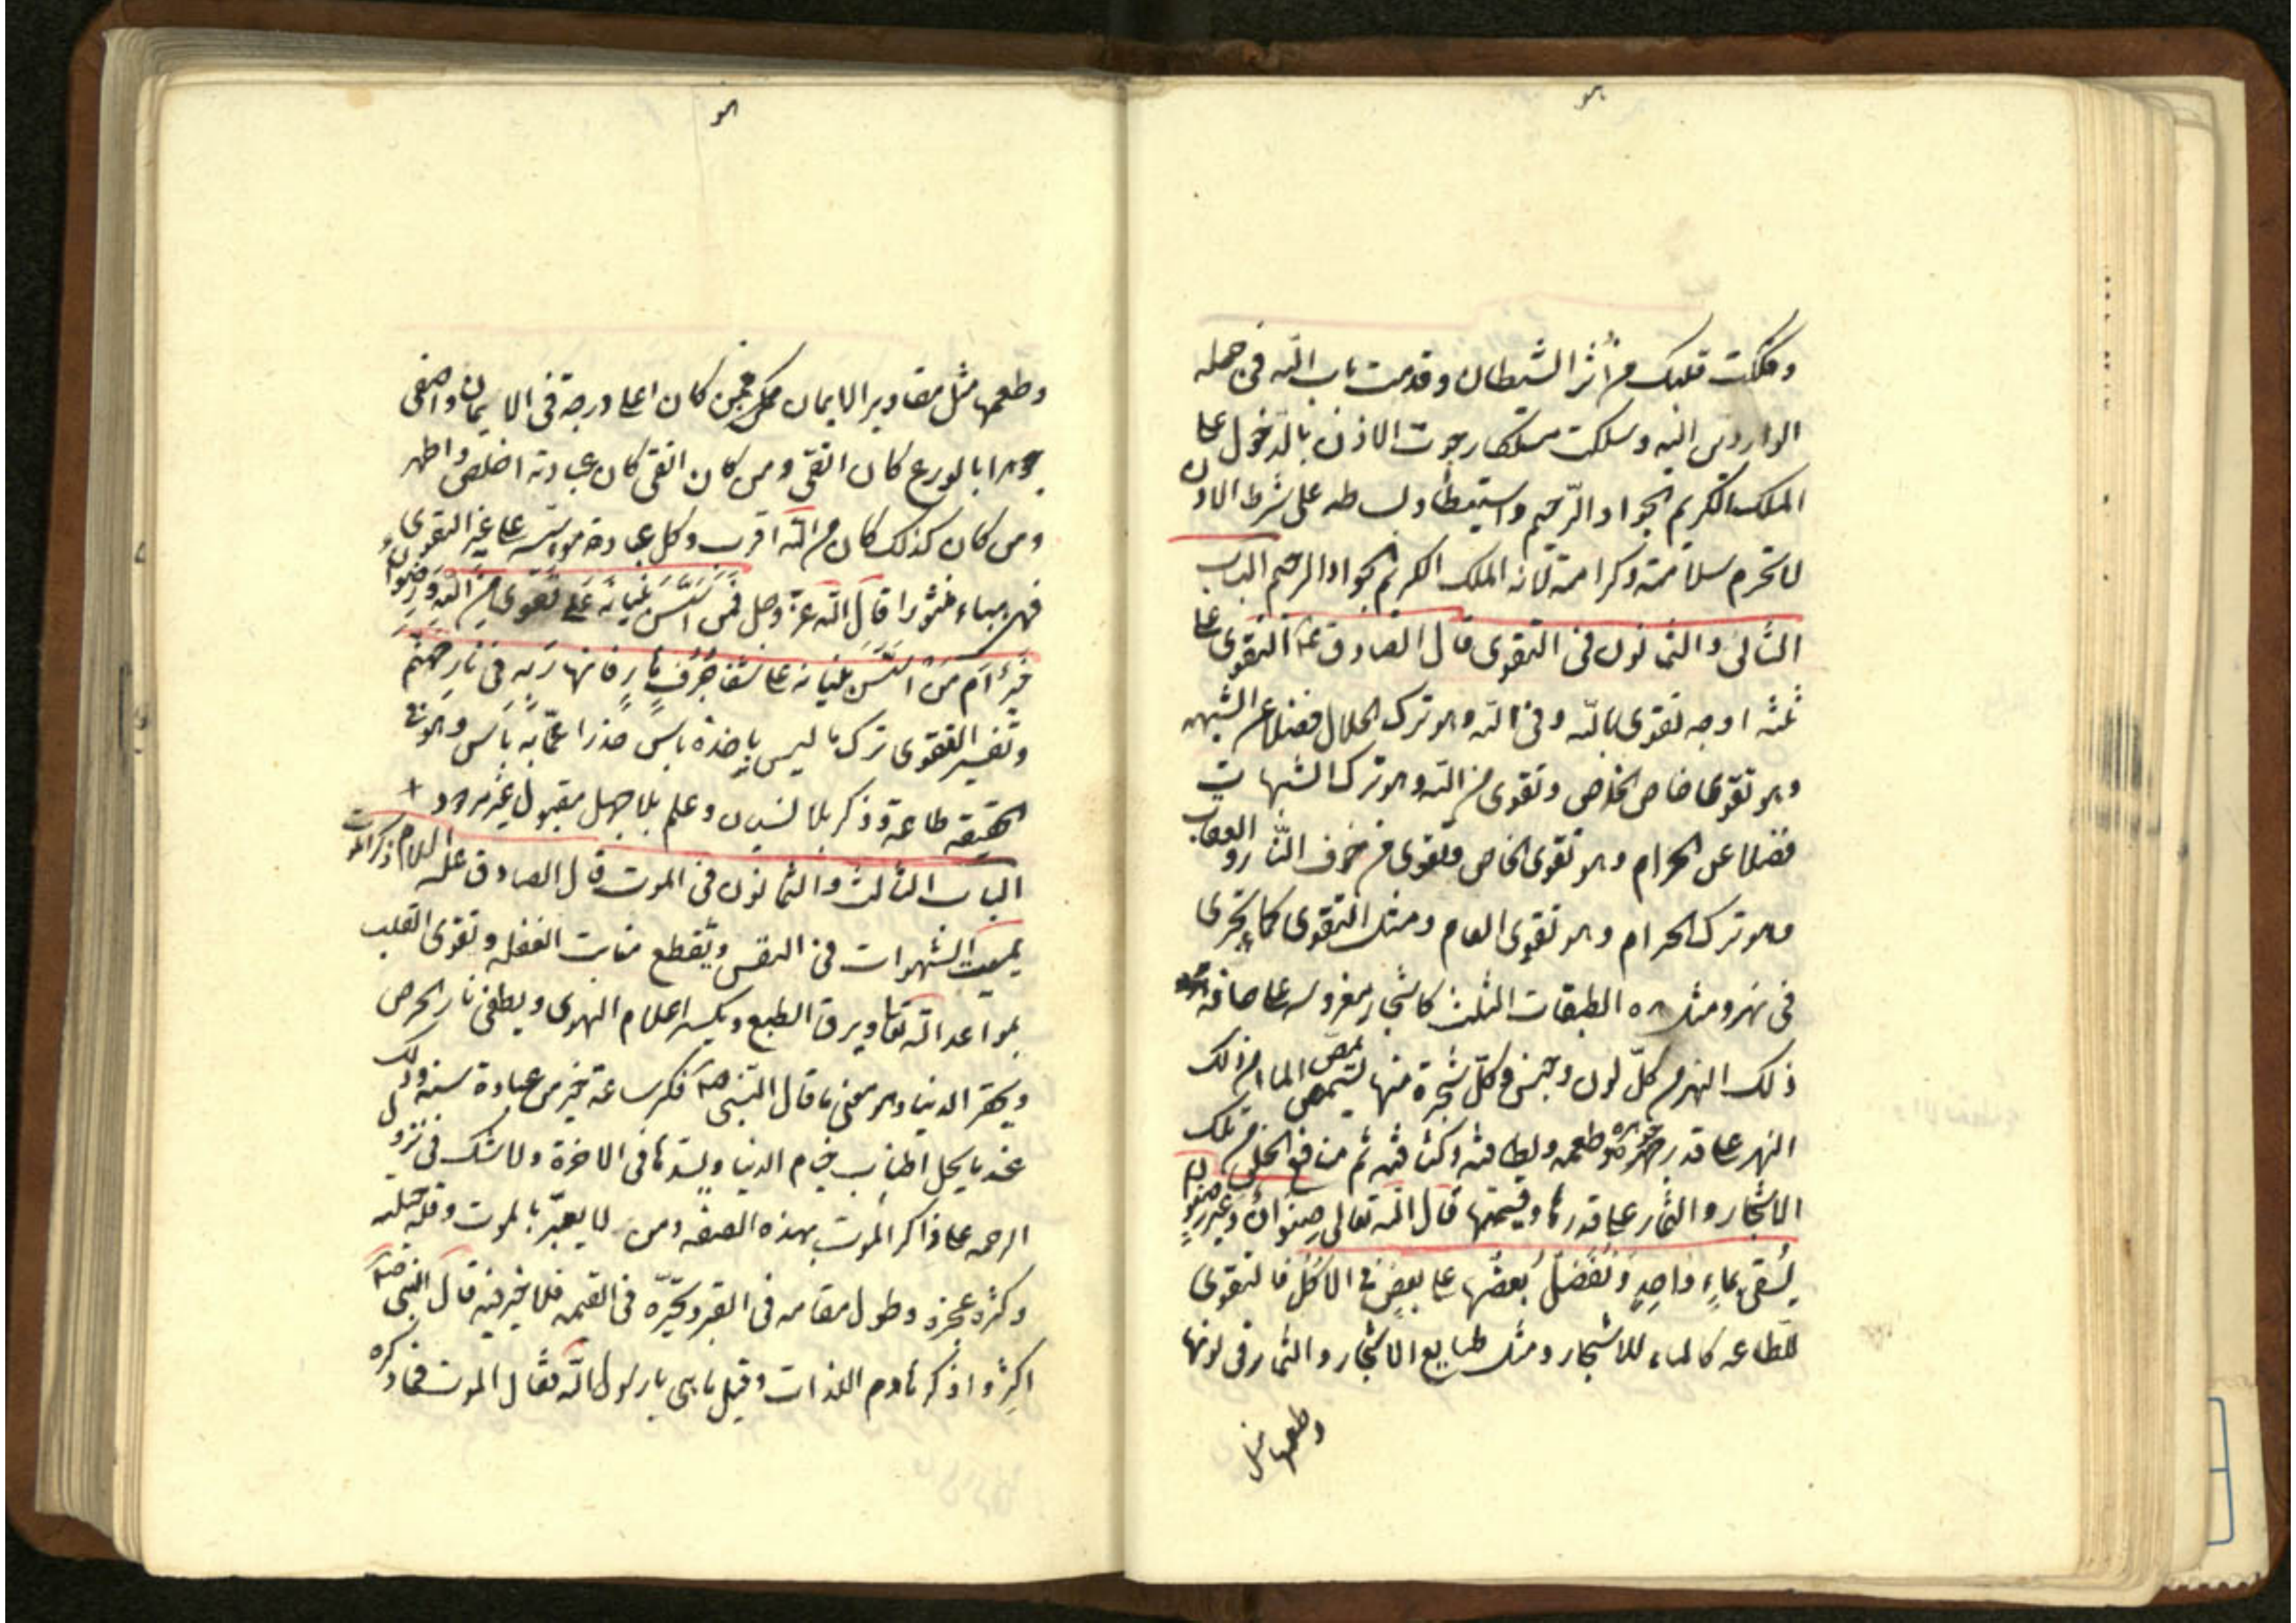 هو
وفككت قلبك من أثر الشيطان وقدمت باب الله في جمله
الواردين اليه وسلكت مسلكا رجوت الاذن بالدخول على
الملك الكريم الجواد الرحيم واستيطاء بساطه على شرط الاذن
لا تحرم سلامته وكرامته لانه الملك الكريم الجواد الرحيم الباب
الثاني والثمانون في التقوى قال الصادق ع التقوى على
ثلثه اوجه تقوى بالله وفي الله وهو ترك الحلال فضلا عن الشبهه
وهو تقوى خاص الخاص وتقوى من الله وهو ترك الشبهات
فضلا عن الحرام وهو تقوى الخاص وتقوى من خوف النار والعقاب
وهو ترك الحرام وهو تقوى العام ومثل التقوى كماء يجرى
في نهر ومثل هذه الطبقات الثلث كاشجار مغروسه على حافة
ذلك النهر من كل لون وجنس وكل شجرة منها يستمص الماء من ذلك
النهر على قدر جوهره وطعمه ولطافته وكثافته ثم منافع الخلق من تلك
الاشجار والثمار على قدرها وقيمتها قال الله تعالى صِنوانٌ وغير صنوان
يُسقى بماءٍ واحِدٍ ونُفضّلُ بعضُها على بعضٍ في الاُكُل فالتقوى
للطاعه كالماء للاشجار ومثل طبايع الاشجار والثمار في لونها
وطعمها مثل
هو
وطعمها مثل مقادير الايمان فمن كان اعلى درجة في الايمان واصفى
جوهرا بالورع كان اتقى ومن كان اتقى كان عبادته اخلص واطهر
ومن كان كذلك كان من الله اقرب وكل عبادة مؤسسه على غير التقوى
فهى هباء منثورا قال الله عز وجل فمن اسّسَ بنيانه على تقوى من الله ورضوان
خيرٌ أم مَن اسّسَ بنيانه على شفا جُرُفٍ هارٍ فانهار به في نار جهنم
وتفسير التقوى ترك ما ليس باخذه باس حذرا عمّا به بأس وهو في
الحقيقه طاعة وذكر بلا نسيان وعلم بلا جهل مقبول غير مردود
الباب الثالث والثمانون في الموت قال الصادق عليه السلام ذكر الموت
يميت الشهوات في النفس ويقطع منابت الغفله وتقوى القلب
بمواعد الله تعا ويرق الطبع ويكسر اعلام الهوى ويطفى نار الحرص
ويحقر الدنيا وهو معنى ما قال النبى ص فكر ساعة خير من عبادة سنه وذلك
عند ما يحل اطناب خيام الدنيا ويشدها في الاخرة ولا شك في نزول
الرحمه على ذاكر الموت بهذه الصفه ومن لا يعتبر بالموت وقلة حيلته
وكثرة عجزه وطول مقامه في القبر وتحيّره في القيمه فلا خير فيه قال النبى ص
اكثروا ذكر هادم اللذات وقيل ما هى يا رسول الله فقال الموت فما ذكره